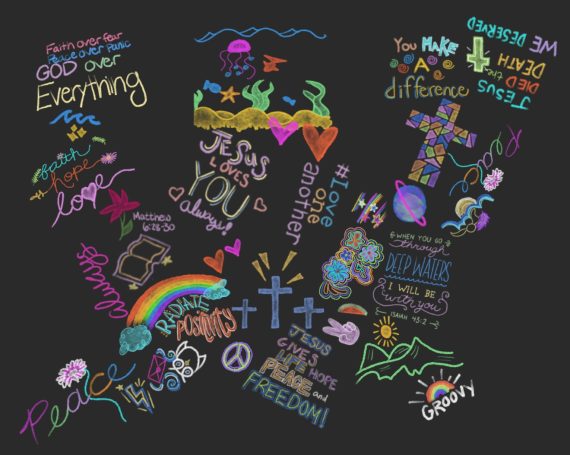 Faith over fear
Peace over panic
GOD over
Everything
You MAKE
A
difference
JESUS
DIED the
DEATH
WE
DESERVED
faith
hope
love
JESUS
LOVES
YOU
always!
#Love
one
another
Matthew
6:28-30
WHEN YOU GO
through
DEEP WATERS
I WILL BE
with you
ISAIAH 43:2
RADIATE
POSITIVITY
JESUS
GIVES
LIFE HOPE
PEACE and
FREEDOM!
Peace
GROOVY